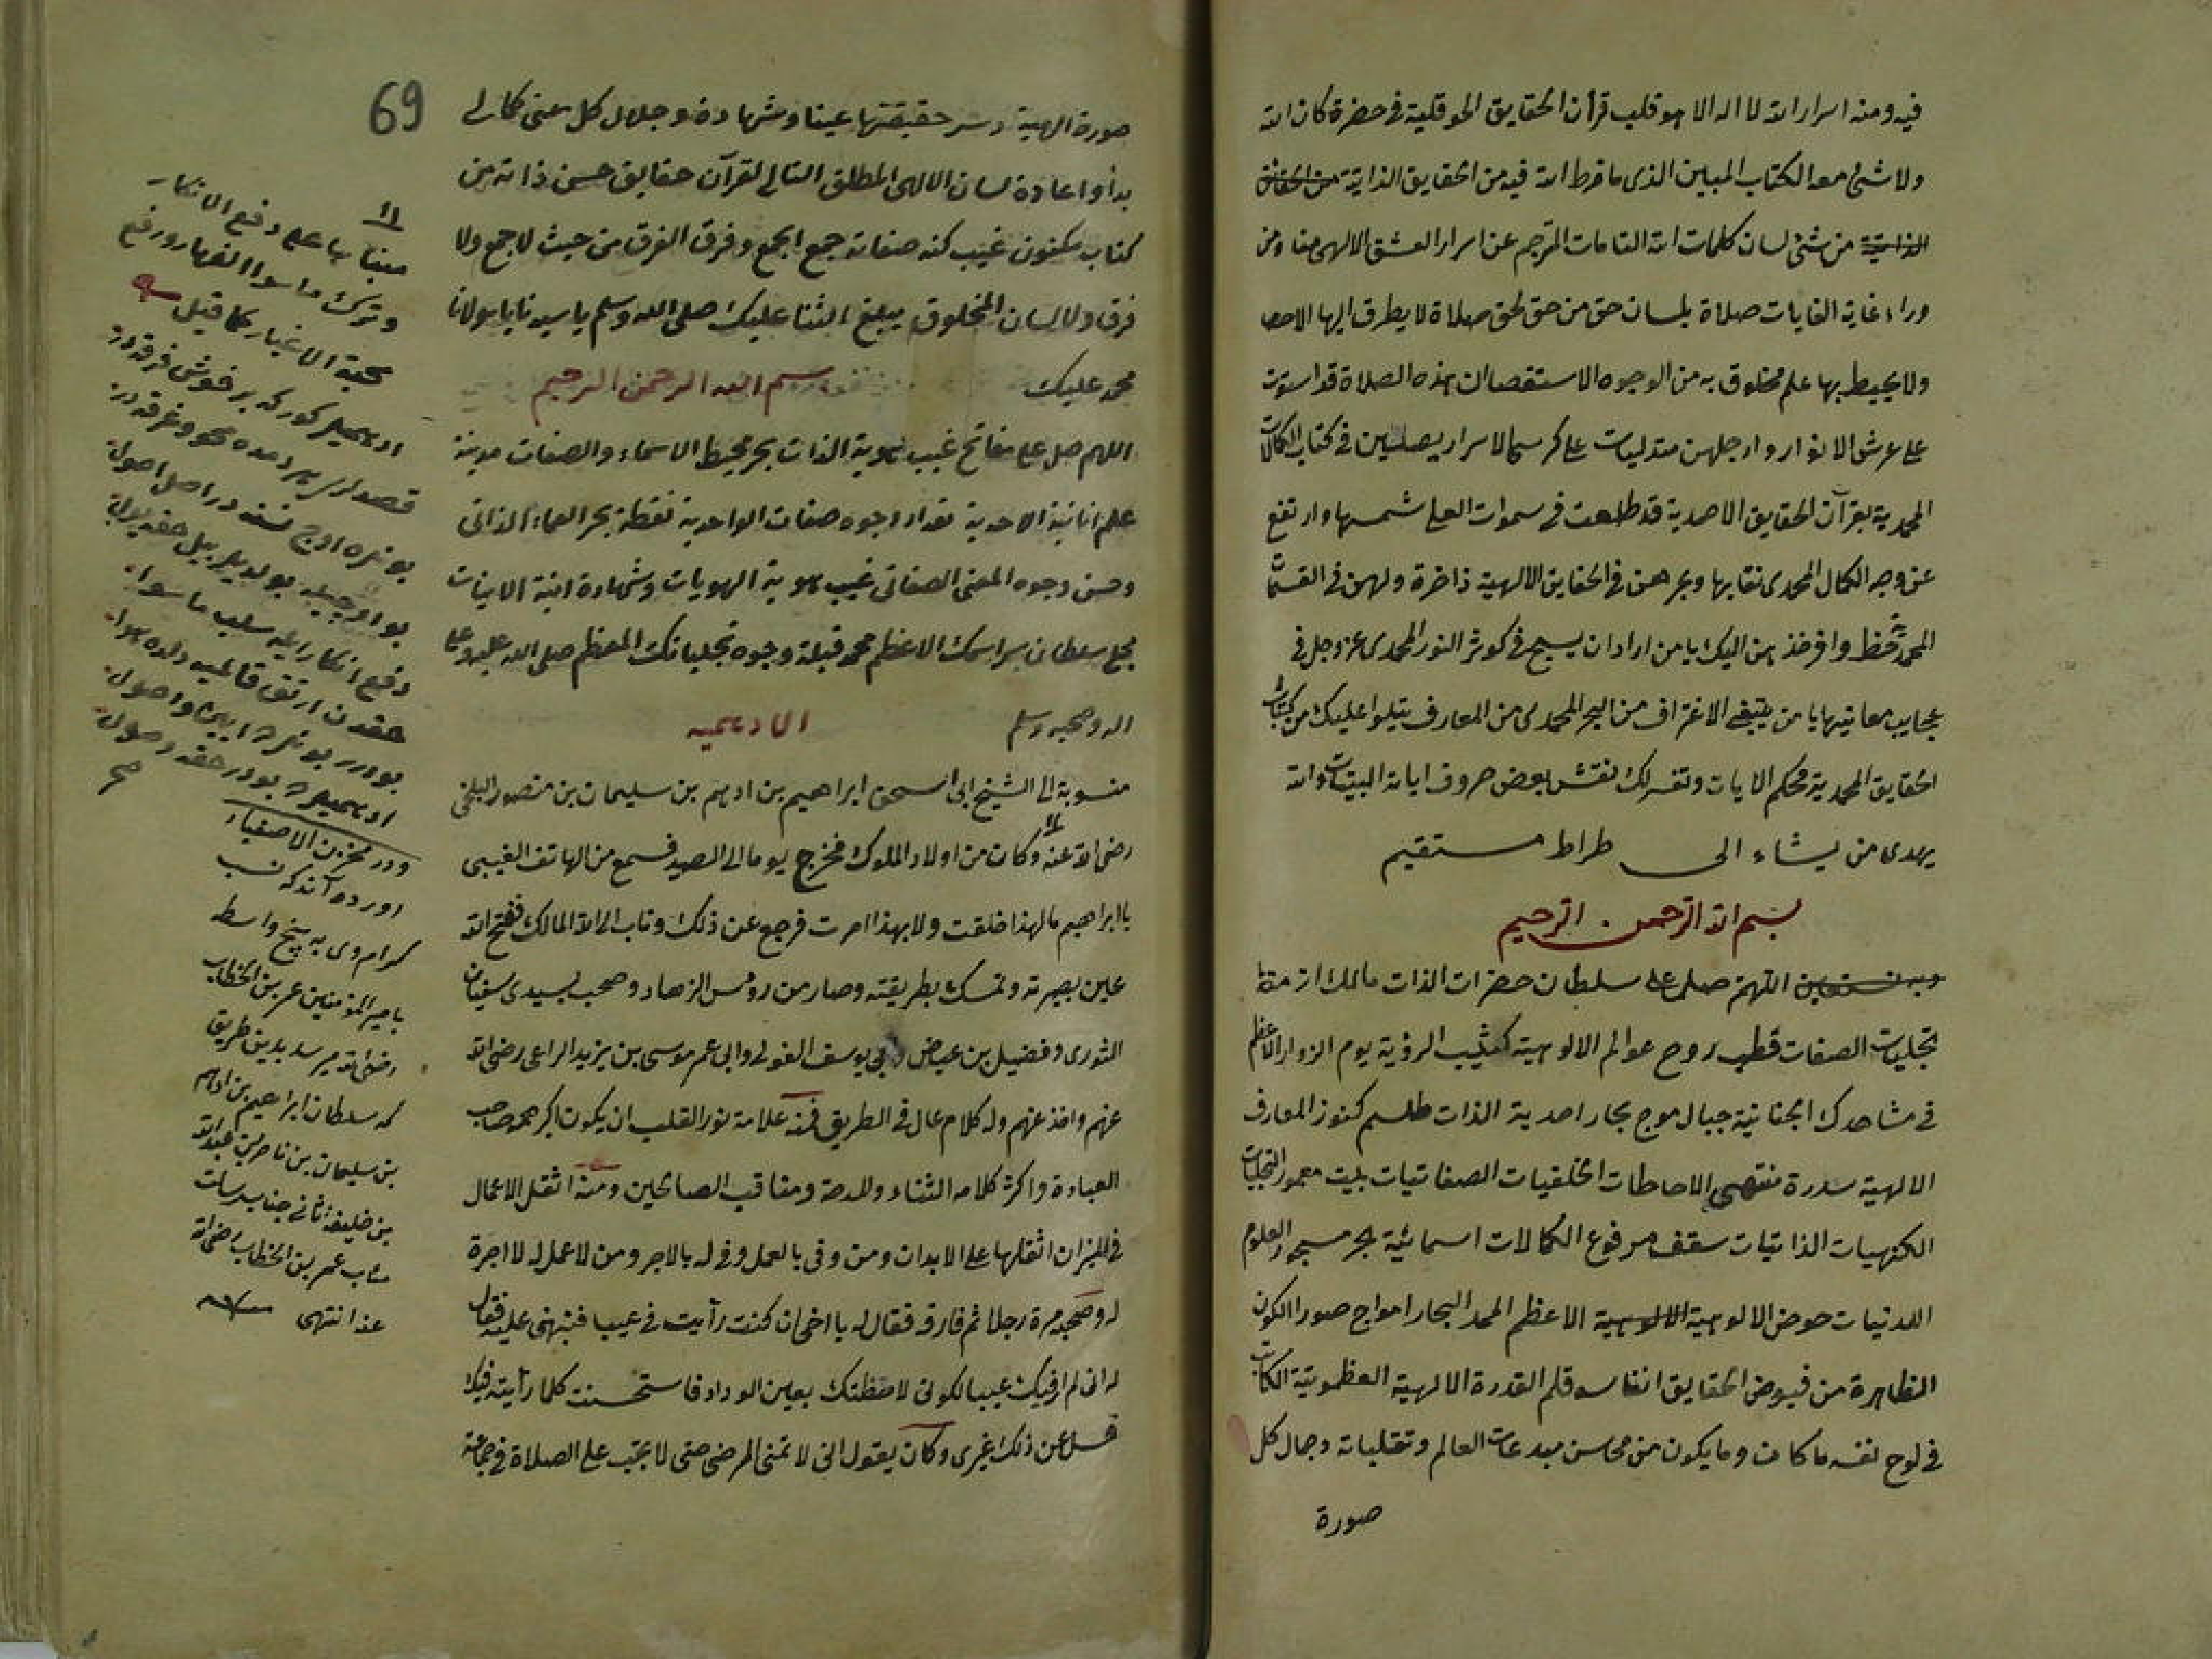 فيه ومنه اسرار الله لا اله الا هو قلب قرأن الحقايق الحوقلية في حضرة كان الله
ولا شئ معه الكتاب المبين الذى ما فرط الله فيه من الحقايق الذاتية من الحقايق
الذاتية من شئ لسان كلمات الله التامات المترجم عن اسرار العشق الالهى منا ومن
وراء غاية الغايات صلاة بلسان حق من حق لحق صلاة لا يطرق اليها الاحصا
ولا يحيط بها علم مخلوق به من الوجوه الاستقصا ان هذه الصلاة قد استوت
على عرش الانوار وارجلهن متدليات على كرسى الاسرار يصلين في كتاب الكمالات
المحمدية بقرآن الحقايق الاحمدية قد طلعت في سموات العلى شمسها وارتفع
عن وجه الكمال المحمدى نقابها وبحرهن في الحقايق الالهية ذاخرة ولهن في القسمة
المحمدية حظ وافر خذهن اليك ايا من اراد ان يسبح في كوثر النور المحمدى عز وجل في
عجايب معانيها يا من يبتغى الاغتراف من البحر المحمدى من المعارف يتلوا عليك من كتاب
الحقايق المحمدية محكم الايات وتفسر لك نقش بعض حروف اياته البينات والله
يهدى من يشاء الى طراط مستقيم
بسم الله الرحمن الرحيم
وبه نستعين اللهم صلى على سلطان حضرات الذات مالك ازمة
تجليات الصفات قطب روح عوالم الالوهية كثيب الرؤية يوم الزوار الاعظم
في مشاهدك الجنانية جبال موج بحار احدية الذات طلسم كنوز المعارف
الالهية سدرة منتهى الاحاطات الخلقيات الصفاتيات بيت معمور التجليات
الكنهيات الذاتيات سقف مرفوع الكمالات اسمائية بحر مسجور العلوم
اللدنيات حوض الالوهية الالوهية الاعظم الممد البحار امواج صور الكون
الظاهرة من فيوض الحقايق انفاسه قلم القدرة الالهية العظموتية الكاتب
في لوح نفسه ما كان وما يكون من محاسن مبدعات العالم وتقلباته وجمال كل
صورة
69
صورة الهية وسر حقيقتها عينا وشهادة وجلال كل معنى كمالى
بدأ واعادة لسان الالهى المطلق التالى لقرآن حقايق حسن ذاته من
كتاب مكنون غيب كنه صفاته جمع الجمع وفرق الفرق من حيث لا جمع ولا
فرق ولا لسان المخلوق يبلغ الثنا عليك صلى الله وسلم يا سيدنا يا مولانا
محمد عليك بسم الله الرحمن الرحيم
اللهم صل على مفاتح غيب هوية الذات بحر محيط الاسماء والصفات مدينة
علم انانية الاحدية تعداد وجوه صفات الواحدية نقطة بحر العماء الذاتى
وحسن وجوه المعنى الصفاتى غيب هوية الهويات وشهادة انية الانيات
مجلى سلطان سر اسمك الاعظم محمد قبلة وجوه تجلياتك المعظم صلى الله عليه وعلى
اله وصحبه وسلم الادهمية
منسوبة الى الشيخ ابى اسحق ابراهيم بن ادهم بن سليمان بن منصور البلخى
رضى الله عنه وكان من اولاد الملوك فخرج يوما الى الصيد فسمع من الهاتف الغيبى
يا ابراهيم ما لهذا خلقت ولا بهذا امرت فرجع عن ذلك وتاب الى الله المالك ففتح الله
عين بصيرته وتمسك بطريقته وصار من رؤس الزهاد وصحب لسيدى سفيان
الثورى وفضيل بن عياض وابى يوسف الغولى وابى عمر موسى بن يزيد الراعى رضى الله
عنهم واخذ عنهم وله كلام عال في الطريق فمنه علامة نور القلب ان يكون اكبر هم صاحب
العبادة واكثر كلامه الثناء والمدحة ومناقب الصالحين ومنه اثقل الاعمال
في الميزان اثقلها على الابدان ومن وفى بالعمل وفى له بالاجر ومن لا عمل له لا اجرة
له وصحبه مرة رجلا ثم فارقه فقال له يا اخى ان كنت رأيت في عيبا فنبهنى عليه فقال
له انى لم ار فيك عيبا لكونى لاحظتك بعين الوداد فاستحسنت كلما رأيته فيك
فسل عن ذلك غيرى وكان يقول انى لا تمنى المرض حتى لا يجب على الصلاة في جماعة
مبناها على دفع الانكار
وترك ما سوا القهار ورفع
محبة الاغيار كما قيل
ادهميلر كوركه بر خوش فرقه در
دفع انكار ايله سلب ما سوا
ودر مخزن الاصفياء
اورده آند كه نسب
كرام وى به پنج واسطه
بامير المؤمنين عمر بن الخطاب
رضى الله ميرسد بدين طريق
كه سلطان ابراهيم بن ادهم
بن سليمان بن ناصر بن عبد الله
بن خليفه ثانى جناب رسالت
مئاب عمر بن الخطاب رضى الله
عنه انتهى